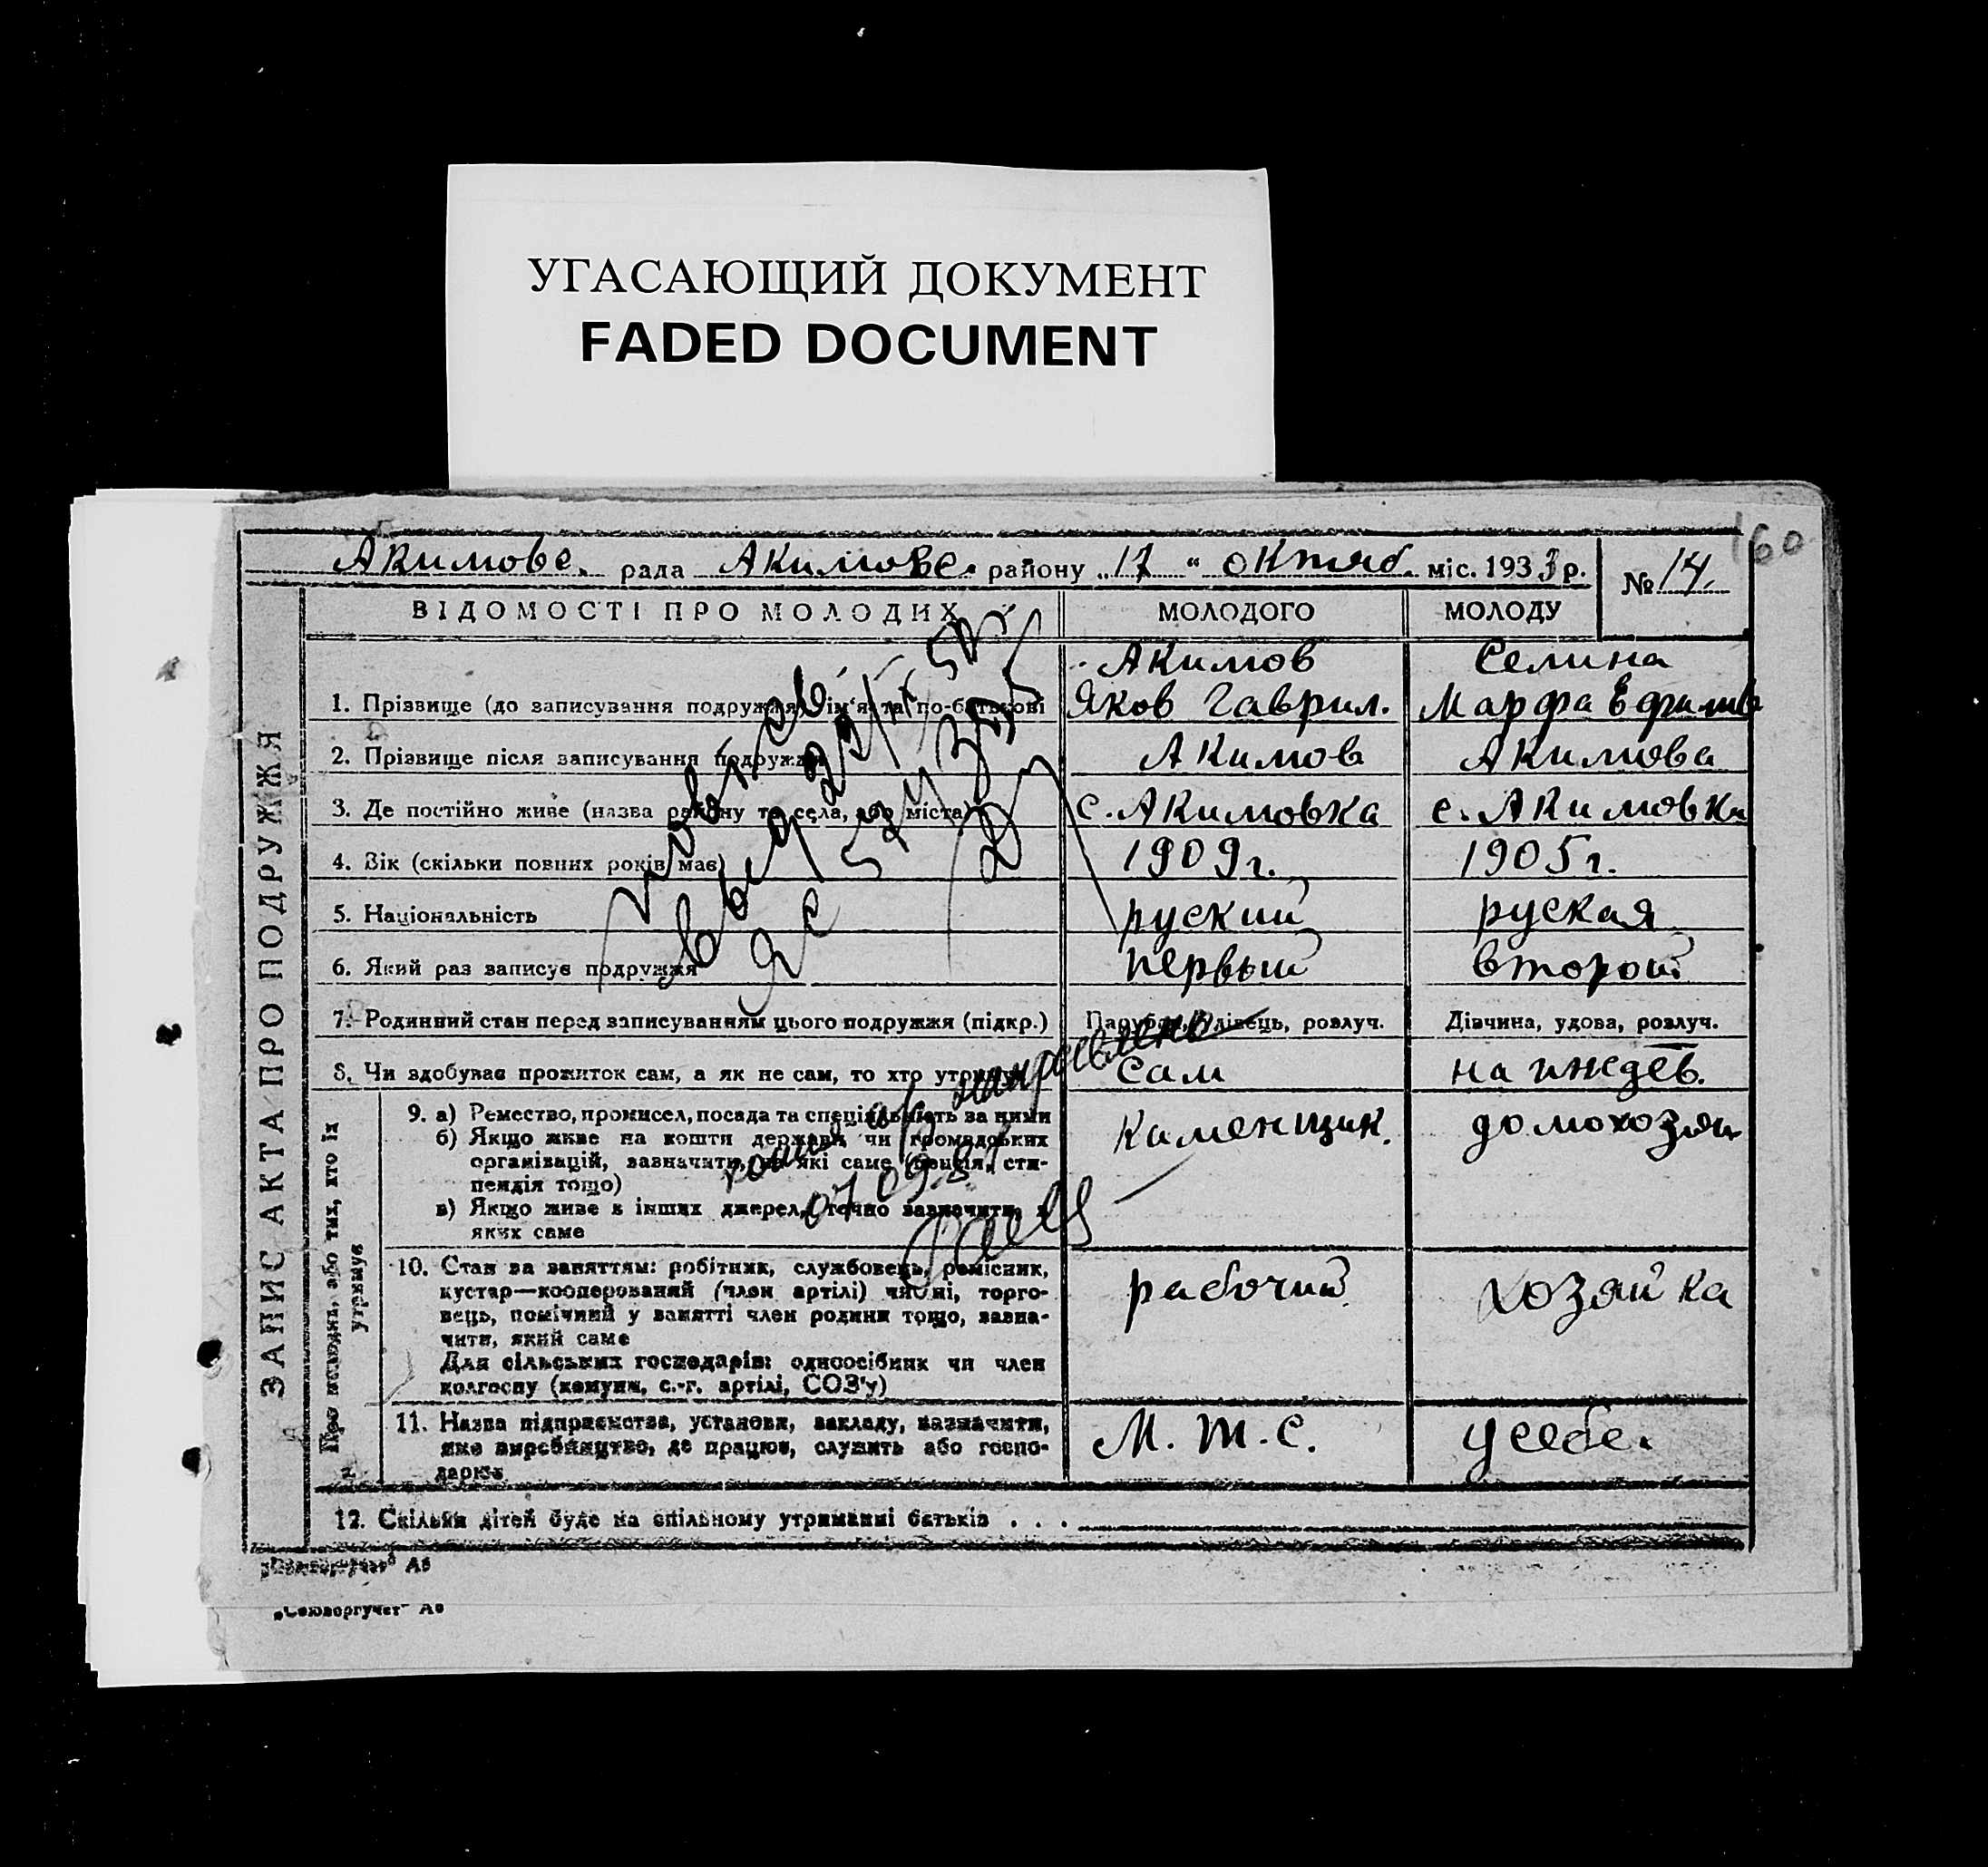 УГАСАЮЩИЙ ДОКУМЕНТ
FADED DOCUMENT
160
Акимовс. рада Акимовс. району „17“ октяб. міс. 1933 р. № 14.
ЗАПИС АКТА ПРО ПОДРУЖЖЯ
ВІДОМОСТІ ПРО МОЛОДИХ МОЛОДОГО МОЛОДУ
Акимов Селина
1. Прізвище (до записування подружжя) ім'я та по-батькові Яков Гаврил. Марфа Ефимов
2. Прізвище після записування подружжя Акимов Акимова
3. Де постійно живе (назва району та села, або міста) с. Акимовка с. Акимовка
4. Вік (скільки повних років має) 1909г. 1905г.
5. Національність руский руская
6. Який раз записує подружжя первый второй
7. Родинний стан перед записуванням цього подружжя (підкр.) Парубок, удівець, розлуч. Дівчина, удова, розлуч.
8. Чи здобуває прожиток сам, а як не сам, то хто утримує сам на иждев.
Про молодих, або тих, хто їх утримує
9. а) Ремество, промисел, посада та спеціяльність за ними каменщик. домохозяй
б) Якщо живе на кошти держави чи громадських
організацій, зазначити, на які саме (пенсія, сти-
пендія тощо)
в) Якщо живе з інших джерел, точно зазначити, з
яких саме
10. Стан за заняттям: робітник, службовець, ремісник, рабочий хозяйка
кустар—кооперований (член артілі) чи ні, торго-
вець, помічний у занятті член родини тощо, зазна-
чити, який саме
Для сільських господарів: одноосібник чи член
колгоспу (комуни, с.-г. артілі, СОЗ'у)
11. Назва підприємства, установи, закладу, зазначити, М.Т.С. у себе.
яке виробництво, де працює, служить або госпо-
дарює
12. Скільки дітей буде на спільному утриманні батьків . . .
„Союзоргучет“ А6
„Союзоргучет“ А6